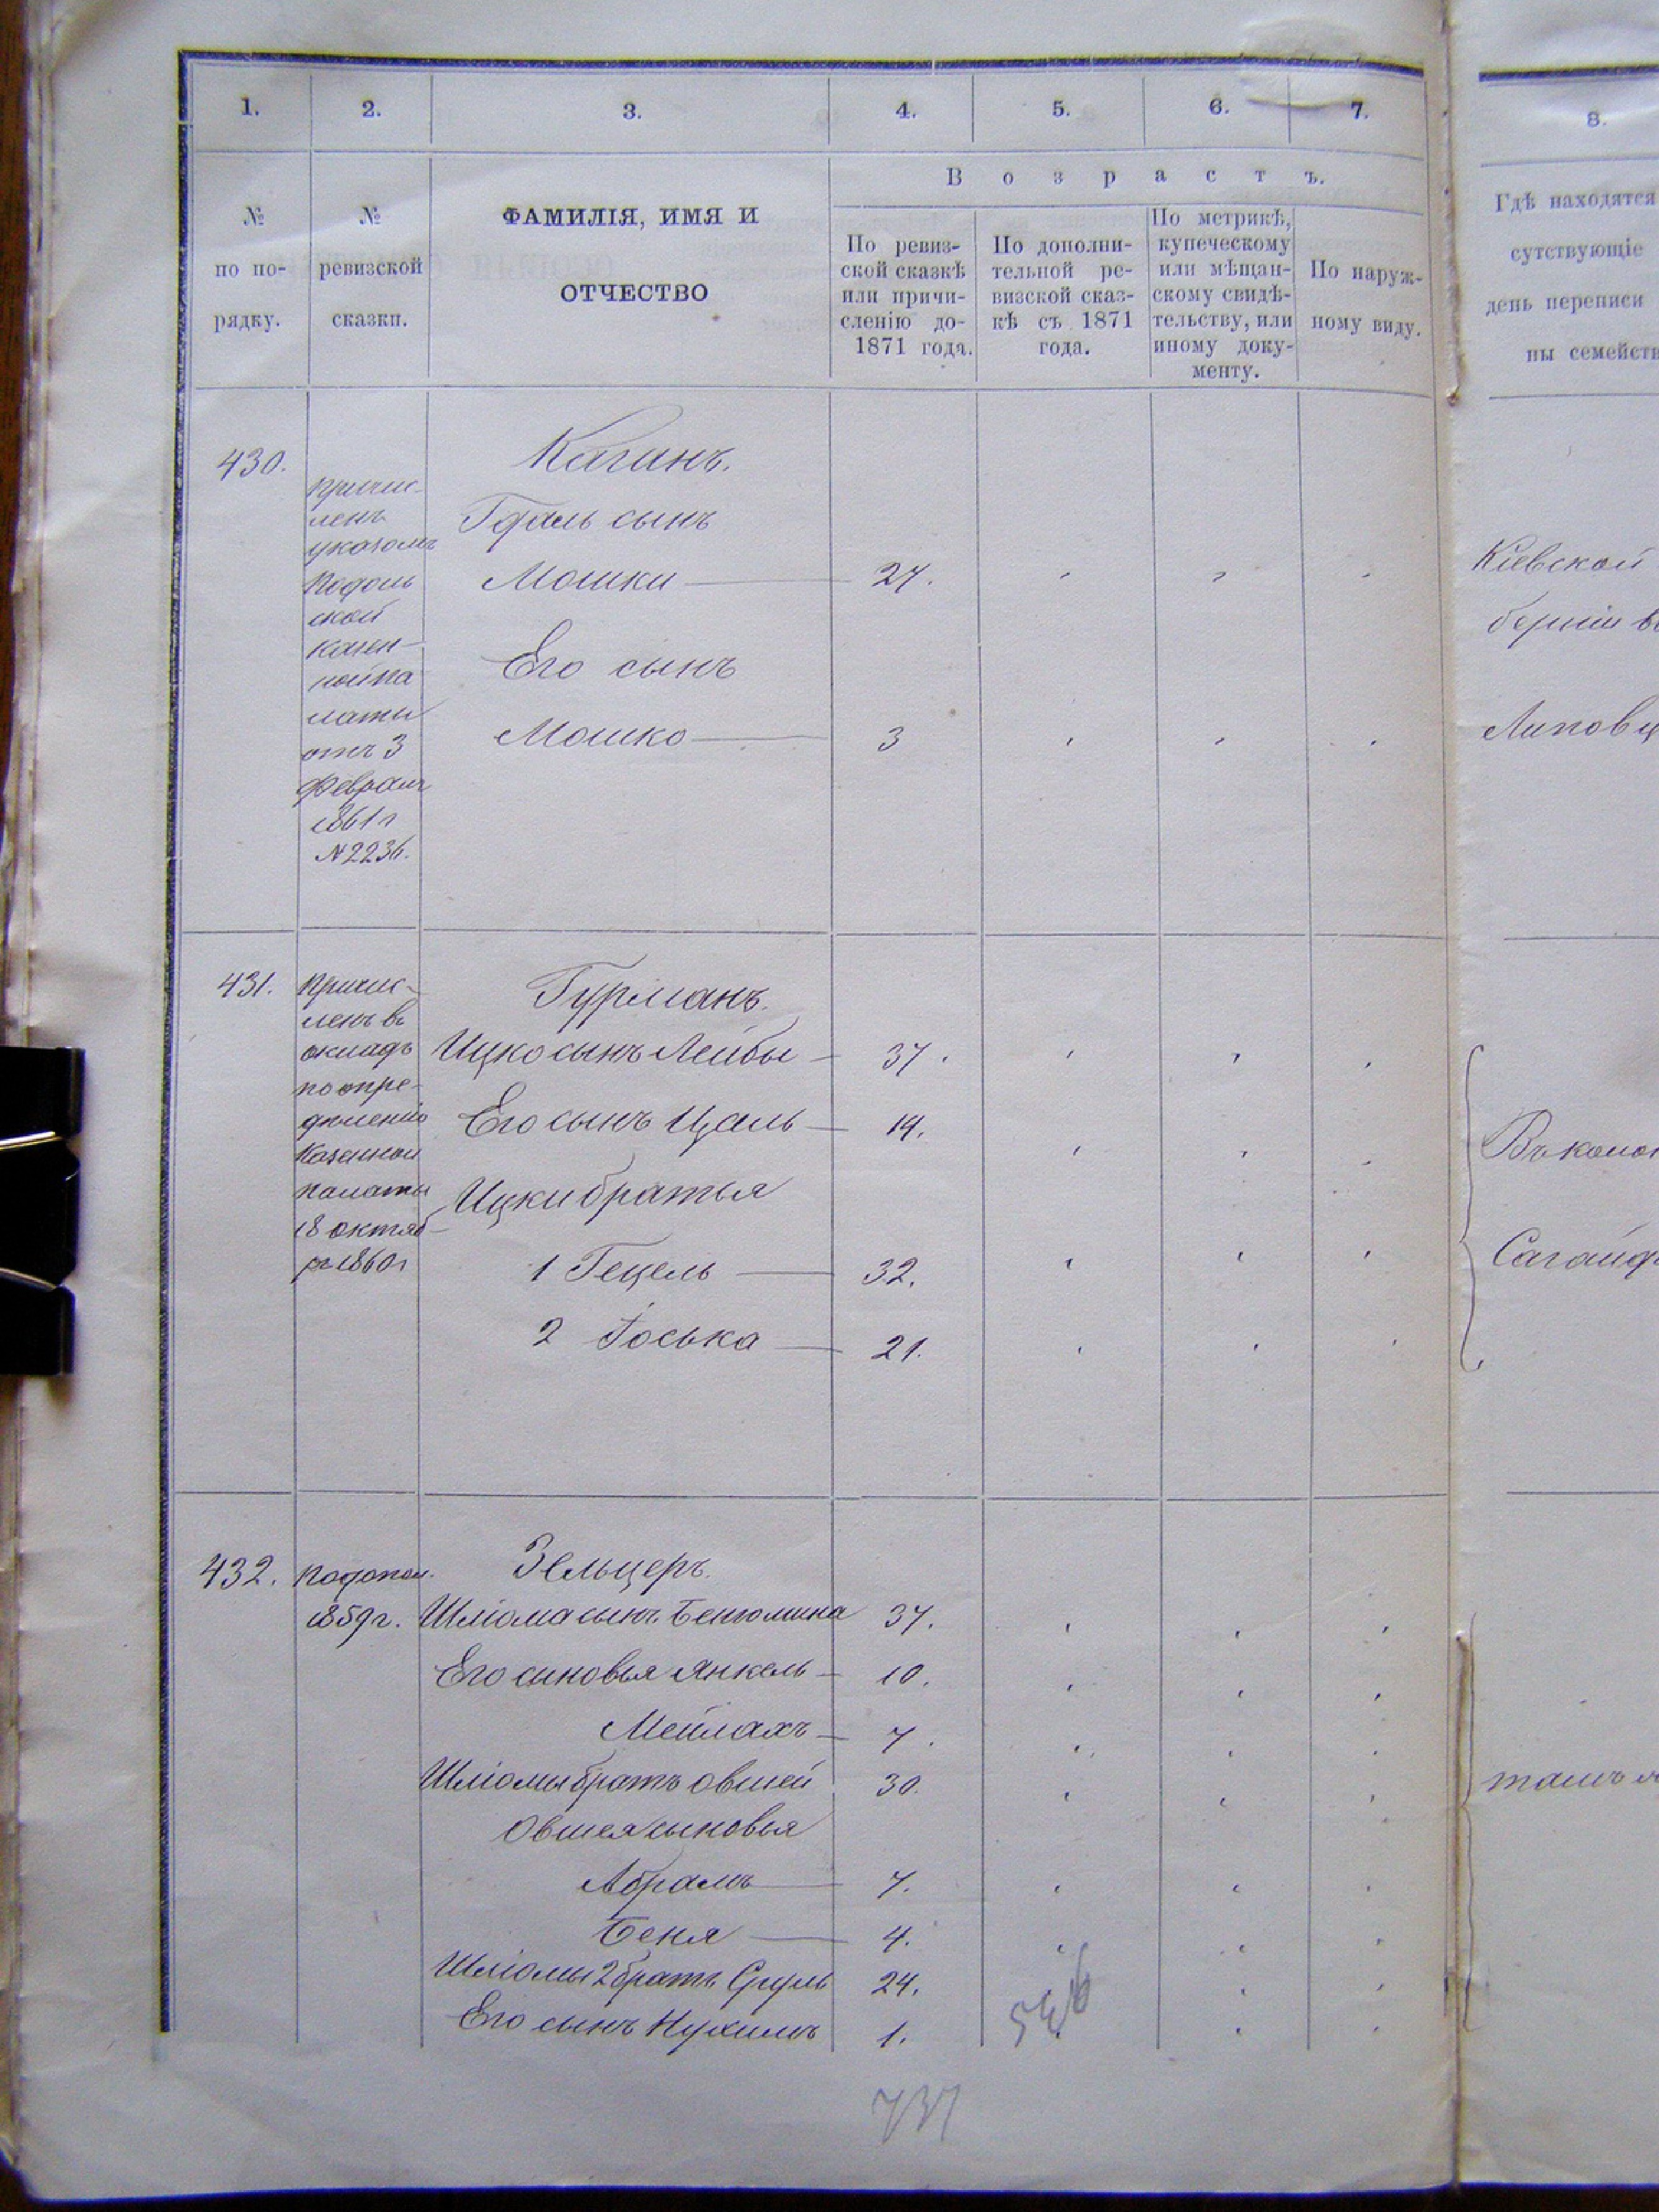 1.
2.
3.
4.
5.
6.
7.
8.
№
по по-
рядку.
№
ревизской
сказки.
ФАМИЛІЯ, ИМЯ И
ОТЧЕСТВО
Возрастъ.
По ревиз-
ской сказкѣ
или причи-
сленію до-
1871 года.
По дополни-
тельной ре-
визской сказ-
кѣ съ 1871
года.
По метрикѣ,
купеческому
или мѣщан-
скому свидѣ-
тельству, или
иному доку-
менту.
По наруж-
ному виду.
Гдѣ находятся
сутствующіе
день переписи
ны семейств
430.
Причис-
ленъ
указомъ
Подоль
ской
казен-
ной па
латы
отъ 3
Февраля
1861 г
№ 2236.
Каганъ.
Гдаль сынъ
Мошки — 27.
Его сынъ
Мошко — 3
Кіевской
берніи в
Липовц
431.
Причис-
ленъ въ
окладъ
по опре-
дѣленію
Казенной
палаты
18 октяб-
ря 1860 г
Гурманъ.
Ицко сынъ Лейбы — 37.
Его сынъ Цаль — 14.
Ицки братья
1 Гецель — 32.
2 Іоська — 21.
Въ колон
Сагайд
432.
По допол.
1859 г.
Зельцеръ.
Шліома сынъ Бенюмина 37.
Его сыновья Янкель — 10.
Мейлахъ — 7.
Шліомы братъ Овшей 30.
Овшея сыновья
Абрамъ — 7.
Беня — 4.
Шліомы 2 братъ Сруль 24.
Его сынъ Нухимъ 1.
тамъ
737